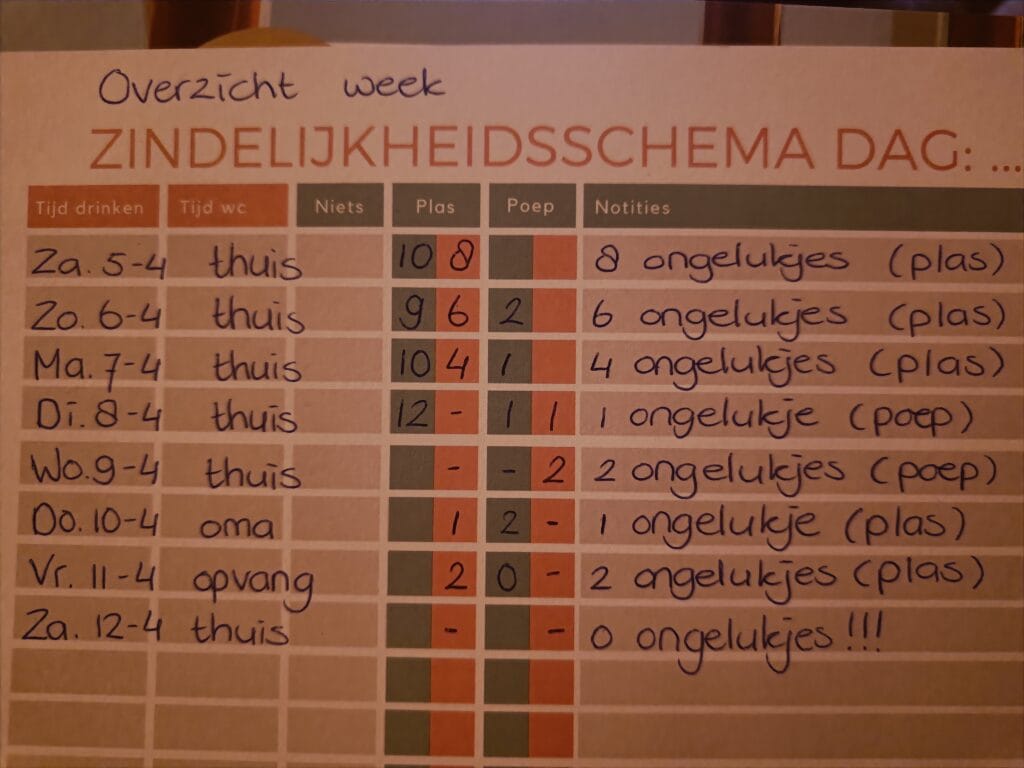 Overzicht week
ZINDELIJKHEIDSSCHEMA DAG: ...
Tijd drinken Tijd wc Niets Plas Poep Notities
Za. 5-4 thuis 10 8 8 ongelukjes (plas)
Zo. 6-4 thuis 9 6 2 6 ongelukjes (plas)
Ma. 7-4 thuis 10 4 1 4 ongelukjes (plas)
Di. 8-4 thuis 12 - 1 1 1 ongelukje (poep)
Wo. 9-4 thuis - - 2 2 ongelukjes (poep)
Do. 10-4 oma 1 2 - 1 ongelukje (plas)
Vr. 11-4 opvang 2 0 - 2 ongelukjes (plas)
Za. 12-4 thuis - - 0 ongelukjes!!!